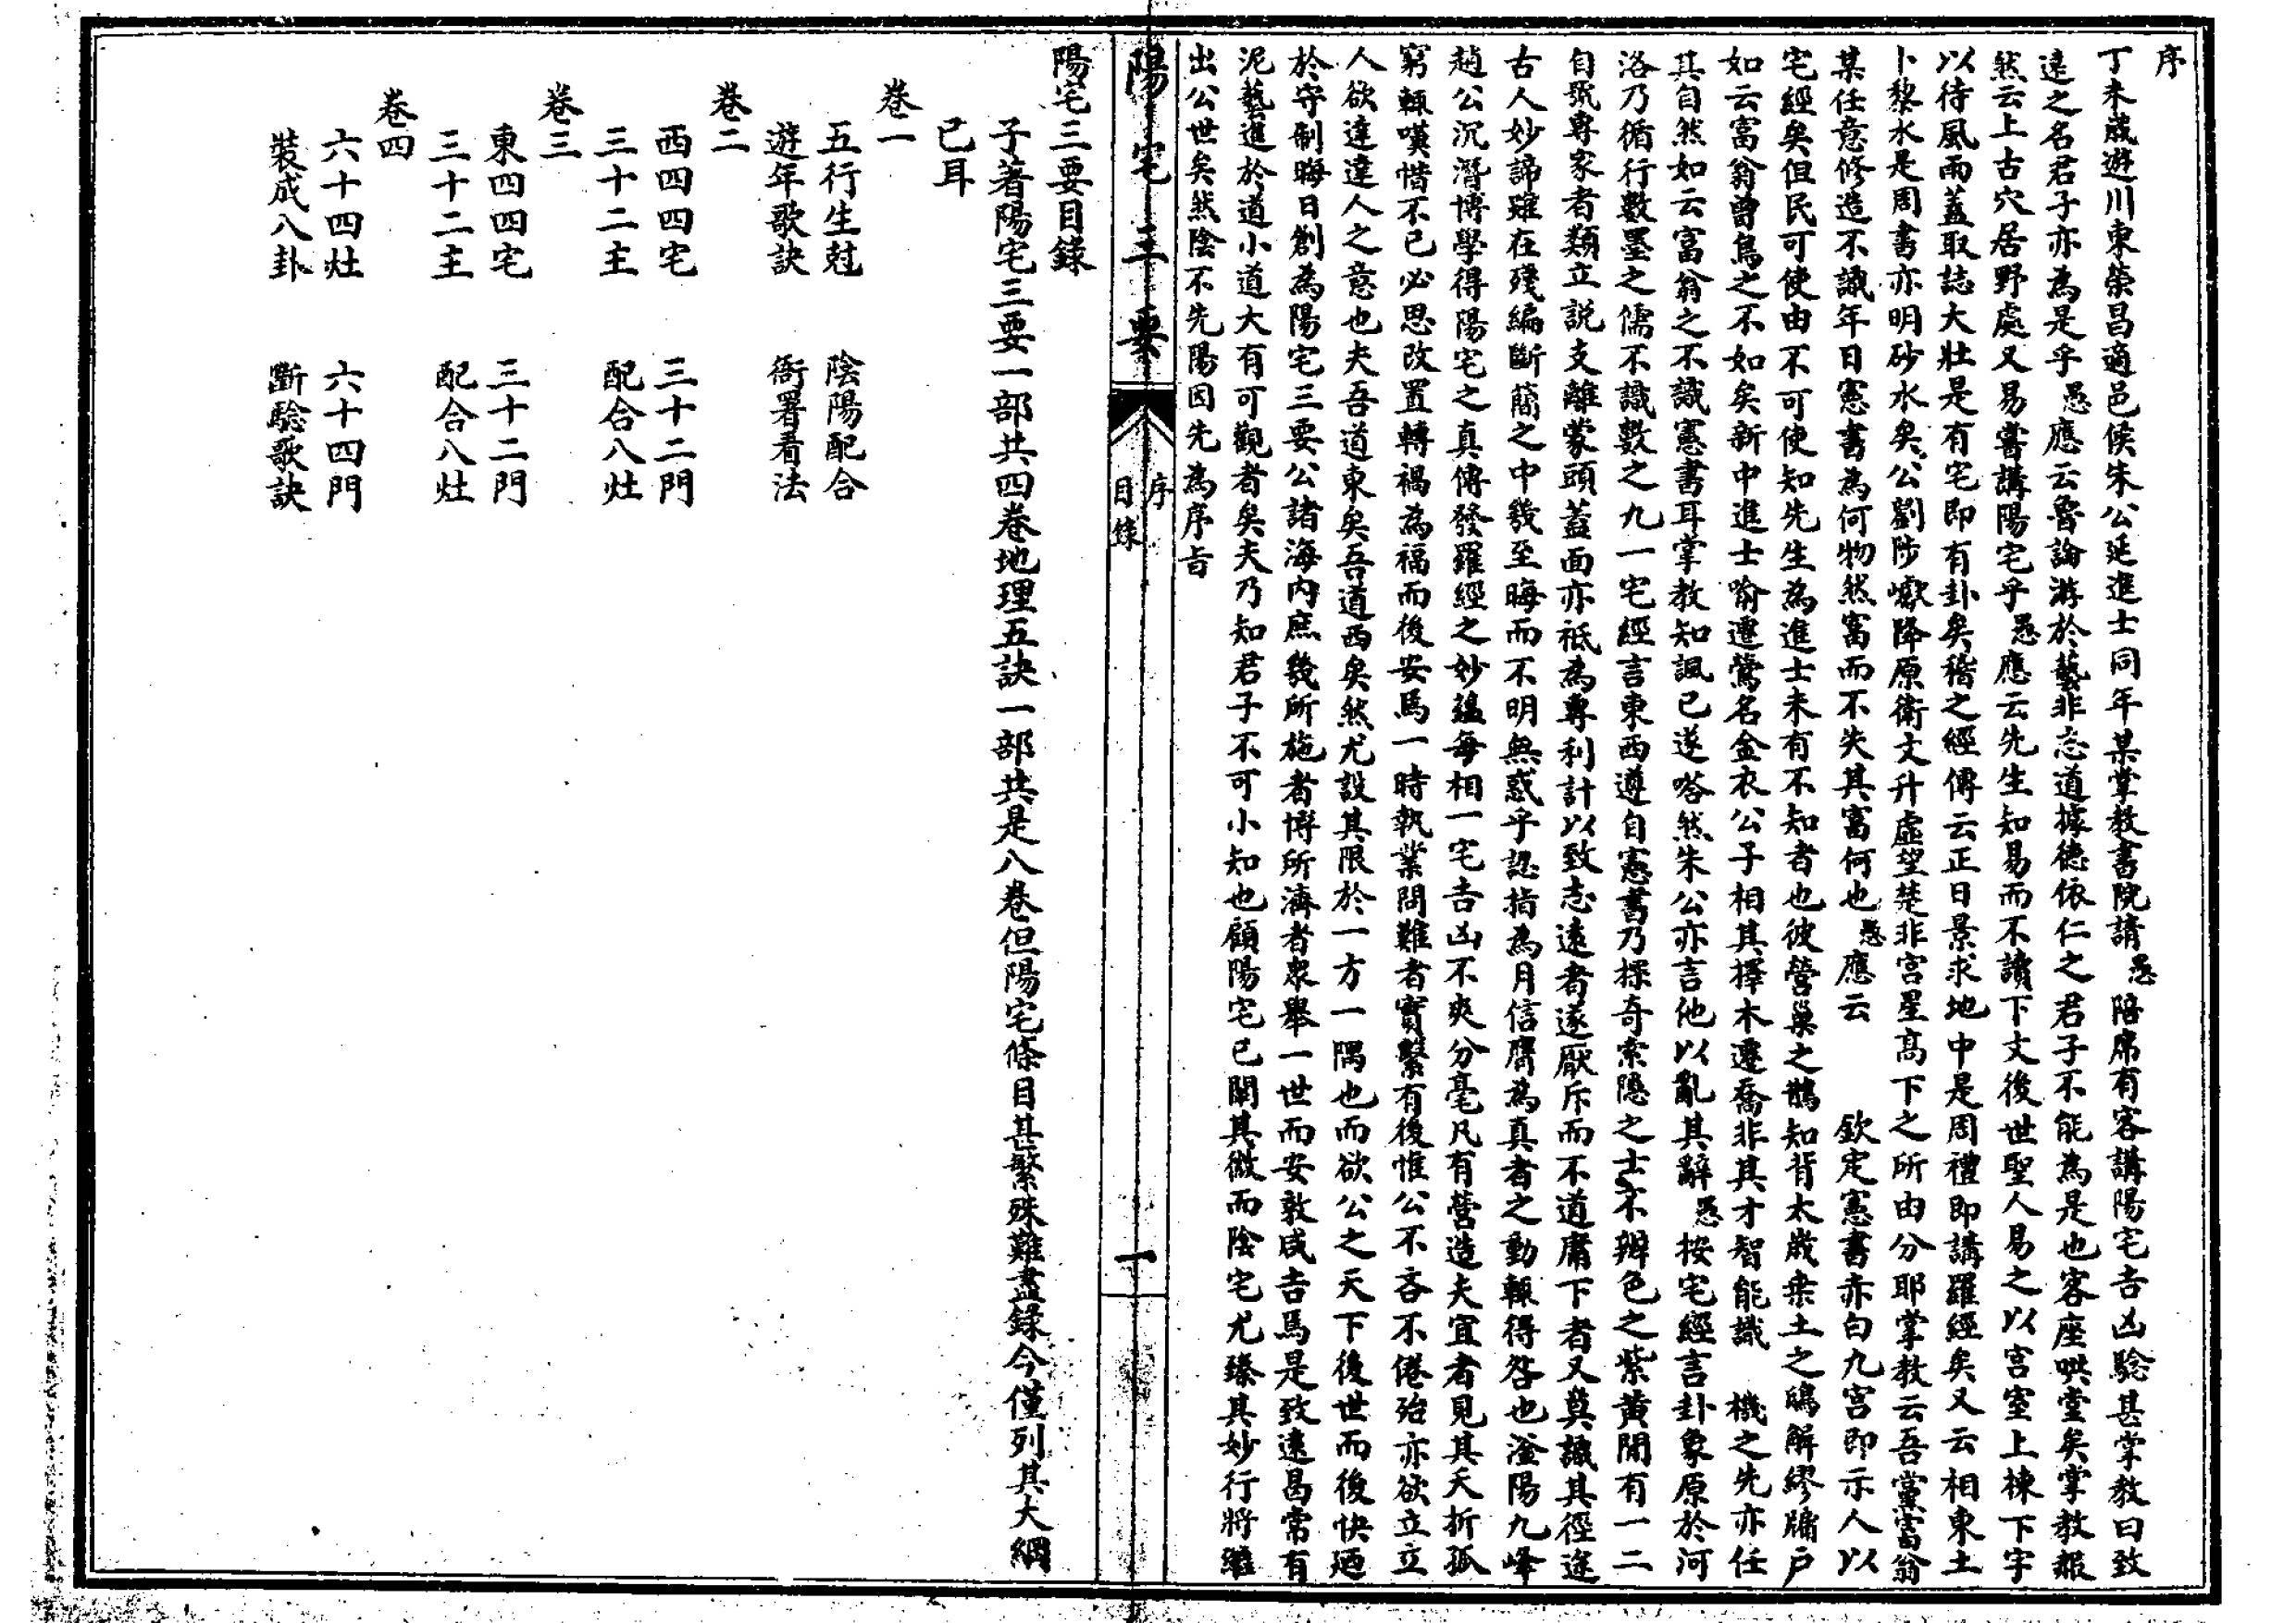 序
丁未歲遊川東榮昌適邑侯朱公延進士同年某掌教書院請愚陪席有客講陽宅吉凶騐甚掌教曰致
遠之名君子亦為是乎愚應云魯論游於藝非忘道據德依仁之君子不能為是也客座哄堂矣掌教赧
然云上古穴居野處又易嘗講陽宅乎愚應云先生知易而不讀下文後世聖人易之以宮室上棟下宇
以待風雨蓋取諸大壯是有宅即有卦矣稽之經傳云正日景求地中是周禮即講羅經矣又云相東土
卜黎水是周書亦明砂水矣公劉陟巘降原衛文升虛望楚非宮星高下之所由分耶掌教云吾黨富翁
某任意修造不識年日憲書為何物然富而不失其富何也愚應云 欽定憲書亦白九宮即示人以
宅經矣但民可使由不可使知先生為進士未有不知者也彼營巢之鵲知背太歲桒土之鴟解繆牖戶
如云富翁曾鳥之不如矣新中進士喻遷鶯名金衣公子相其擇木遷喬非其才智能識 機之先亦任
其自然如云富翁之不識憲書耳掌教知諷已遂嗒然朱公亦言他以亂其辭愚按宅經言卦象原於河
洛乃循行數墨之儒不識數之九一宅經言東西遵自憲書乃探奇索隱之士不辨色之紫黃間有一二
自號專家者類立説支離蒙頭蓋面亦祗為專利計以致志遠者遂厭斥而不道庸下者又莫識其徑途
古人妙諦雖在殘編斷簡之中幾至晦而不明無惑乎認指為月信贗為真者之動輒得咎也滏陽九峰
趙公沉潛博學得陽宅之真傳發羅經之妙蘊每相一宅吉凶不爽分毫凡有營造夫宜者見其夭折孤
窮輒嘆惜不已必思改置轉禍為福而後安焉一時執業問難者實繫有後惟公不吝不倦殆亦欲立立
人欲達達人之意也夫吾道東矣吾道西矣然尤設其限於一方一隅也而欲公之天下後世而後快廼
於守制晦日創為陽宅三要公諸海內庶幾所施者博所濟者衆舉一世而安敦咸吉焉是致遠曷常有
泥藝進於道小道大有可觀者矣夫乃知君子不可小知也顧陽宅已闡其微而陰宅尤臻其妙行將繼
出公世矣然陰不先陽因先為序旨
陽宅三要
序
目錄
一
陽宅三要目錄
子著陽宅三要一部共四卷地理五訣一部共是八卷但陽宅條目甚繁殊難盡錄今僅列其大綱
已耳
卷一
五行生尅 陰陽配合
遊年歌訣 衙署看法
卷二
西四四宅 三十二門
三十二主 配合八灶
卷三
東四四宅 三十二門
三十二主 配合八灶
卷四
六十四灶 六十四門
裝成八卦 斷騐歌訣